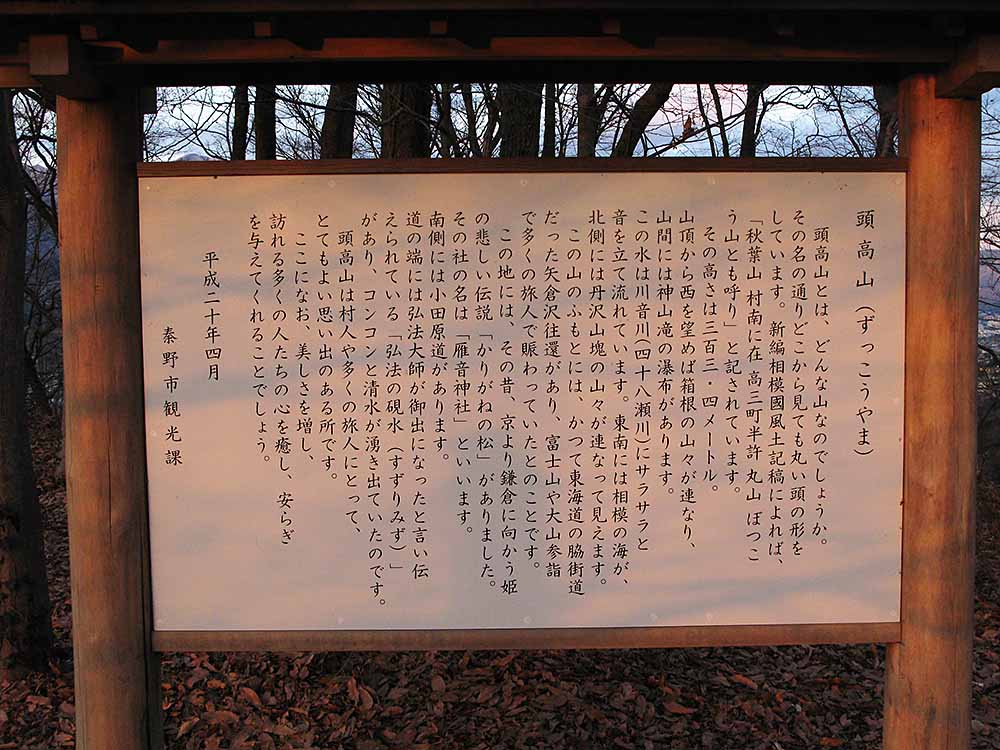 頭高山（ずっこうやま）
頭高山とは、どんな山なのでしょうか。
その名の通りどこから見ても丸い頭の形を
しています。新編相模國風土記稿によれば、
「秋葉山 村南に在 高三町半許 丸山 ぼつこ
う山とも呼り」と記されています。
その高さは三百三・四メートル。
山頂から西を望めば箱根の山々が連なり、
山間には神山滝の瀑布があります。
この水は川音川(四十八瀬川)にサラサラと
音を立て流れています。東南には相模の海が、
北側には丹沢山塊の山々が連なって見えます。
この山のふもとには、かつて東海道の脇街道
だった矢倉沢往還があり、富士山や大山参詣
で多くの旅人で賑わっていたとのことです。
この地には、その昔、京より鎌倉に向かう姫
の悲しい伝説「かりがねの松」がありました。
その社の名は「雁音神社」といいます。
南側には小田原道があります。
道の端には弘法大師が御出になったと言い伝
えられている「弘法の硯水（すずりみず）」
があり、コンコンと清水が湧き出ていたのです。
頭高山は村人や多くの旅人にとって、
とてもよい思い出のある所です。
ここになお、美しさを増し、
訪れる多くの人たちの心を癒し、安らぎ
を与えてくれることでしょう。
平成二十年四月
秦野市観光課